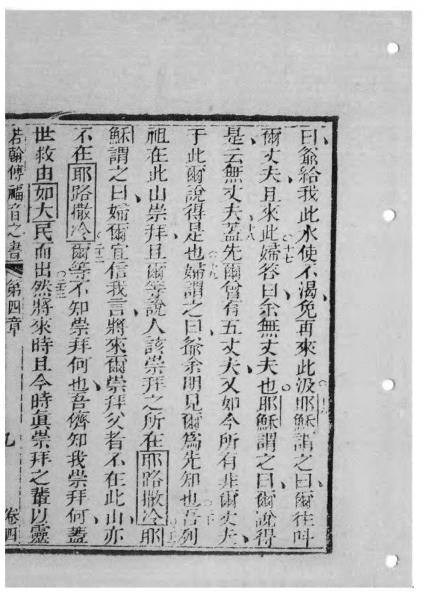 曰爺給我此水使不渴免再來此汲耶穌謂之曰爾往呌
爾丈夫且來此婦答曰余無丈夫也耶穌謂之曰爾說得
是云無丈夫蓋先爾曾有五丈夫又如今所有非爾丈夫
于此爾說得是也婦謂之曰爺余明見爾爲先知也吾列
祖在此山崇拜且爾等說人該崇拜之所在耶路撒冷耶
穌謂之曰婦爾宜信我言將來爾崇拜父者不在此山亦
不在耶路撒冷爾等不知崇拜何也吾儕知我崇拜何蓋
世救由如大民而出然將來時且今時眞崇拜之輩以靈
若翰傳福音之書 第四章 九 卷四